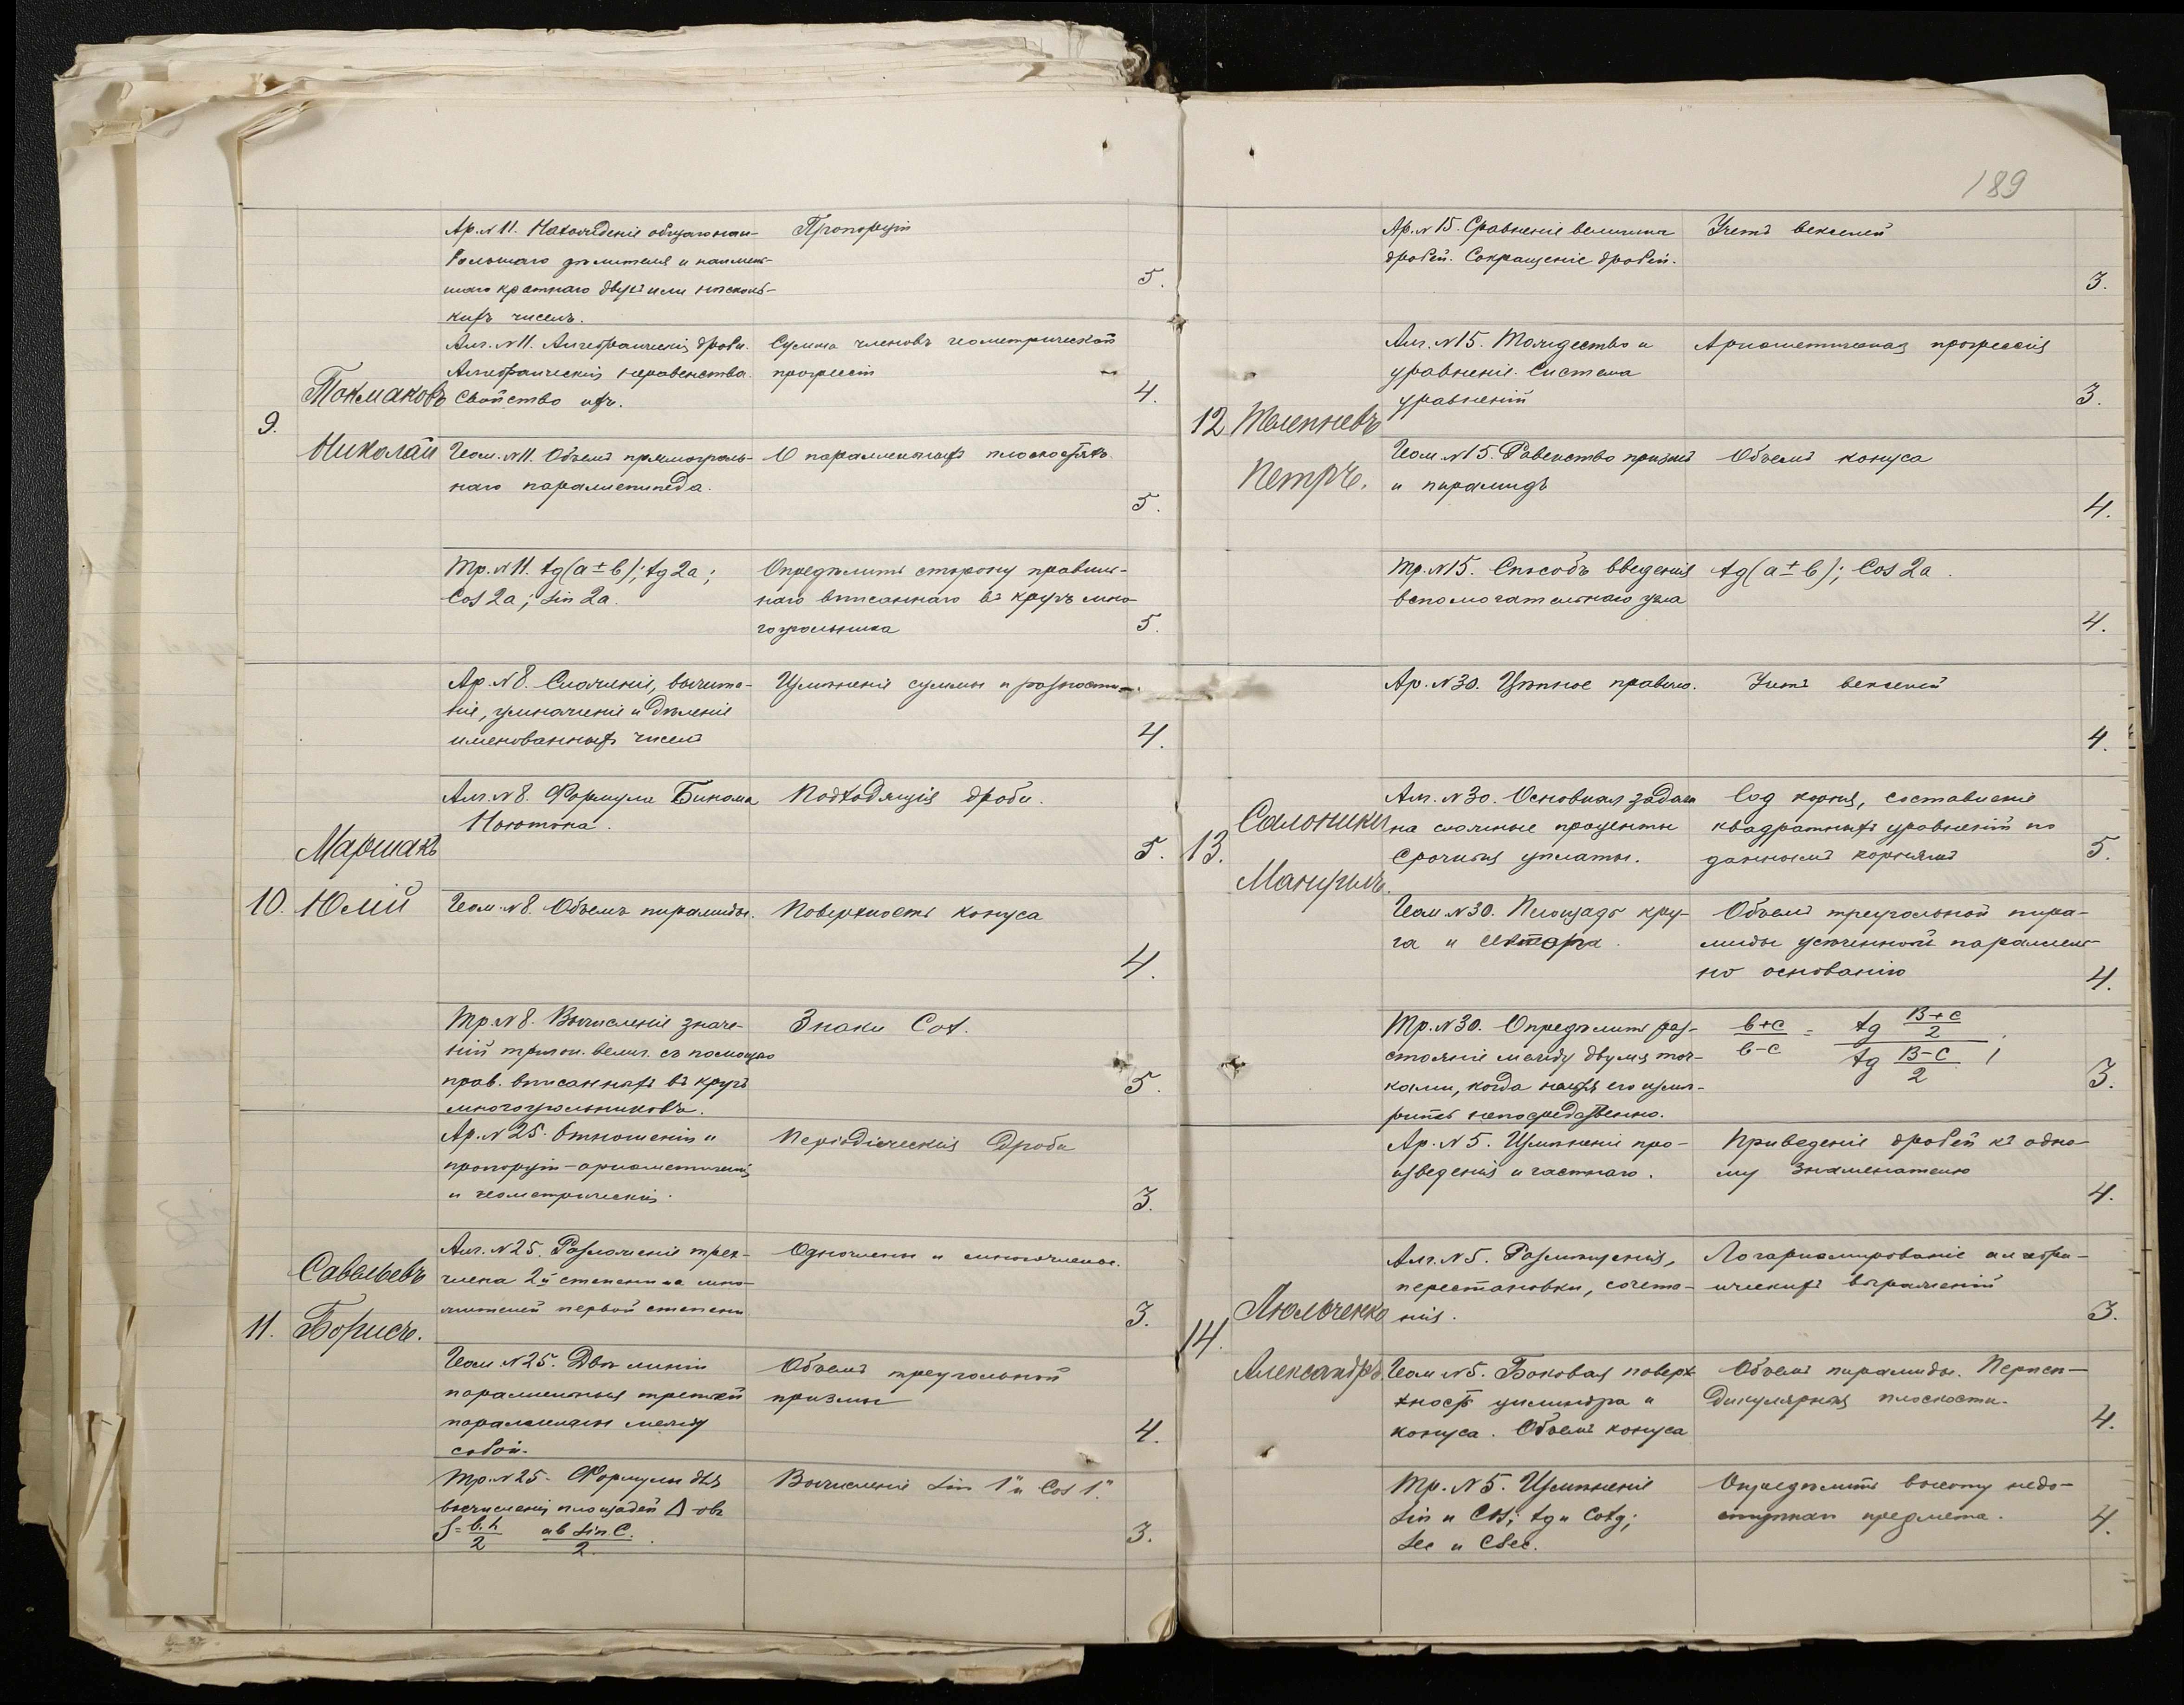 Ар. № 11. Нахожденіе общаго наи-
большаго дѣлителя и наимень-
шаго кратнаго двухъ или нѣсколь-
кихъ чиселъ.
Пропорціи
5.
Алг. № 11. Алгебраическія дроби.
Алгебраическія неравенства.
Свойство ихъ.
Сумма членовъ геометрической
прогрессіи
4.
9.
Токмаковъ
Николай
Геом. № 11. Объемъ прямоуголь-
наго параллепипеда.
О параллельныхъ плоскостяхъ.
5.
Тр. № 11. tg(a ± b); tg 2a;
Cos 2a; Sin 2a.
Опредѣлить сторону правиль-
наго вписаннаго въ кругъ мно-
гоугольника
5.
Ар. № 8. Сложеніе, вычита-
ніе, умноженіе и дѣленіе
именованныхъ чиселъ
Измѣненіе суммы и разности.
4.
Алг. № 8. Формула Бинома
Ньютона.
Подходящія дроби.
5.
10.
Маршакъ
Юлій
Геом. № 8. Объемъ пирамиды.
Поверхность конуса
4.
Тр. № 8. Вычисленіе значе-
ній тригон. велич. съ помощью
прав. вписанныхъ въ кругъ
многоугольниковъ.
Знаки Cot.
5.
Ар. № 25. Отношенія и
пропорціи – ариѳметическія
и геометрическія.
Періодическія дроби
3.
Алг. № 25. Разложеніе трех-
члена 2й степени на мно-
жителей первой степени
Одночлены и многочлены.
3.
11.
Савельевъ
Борисъ.
Геом. № 25. Двѣ линіи
параллельныя третьей
параллельны между
собой.
Объемъ треугольной
призмы
4.
Тр. № 25. Формулы для
вычисленія площадей Δ-овъ
S = b.h/2 ab Sin C./2.
Вычисленіе Sin 1" и Cos 1".
3.
189
Ар. № 15. Сравненіе величины
дробей. Сокращеніе дробей.
Учетъ векселей
3.
Алг. № 15. Тождество и
уравненіе. Система
уравненій
Ариѳметическая прогрессія
3.
12
Петръ.
Геом. № 15. Равенство призмъ
и пирамидъ
Объемъ конуса
4.
Тр. № 15. Способъ введенія
вспомогательнаго угла
tg(a ± b); Cos 2a.
4.
Ар. № 30. Цѣпное правило.
Учетъ векселей
4.
Алг. № 30. Основная задача
на сложные проценты
Срочныя уплаты.
корня, составленіе
квадратныхъ уравненій по
даннымъ корнямъ
5.
13.
Салоники
Мануилъ.
Геом. № 30. Площадь кру-
га и сектора.
Объемъ треугольной пира-
миды усѣченной параллель-
но основанію
4.
Тр. № 30. Опредѣлить раз-
стояніе между двумя точ-
ками, когда нельзя его измѣ-
рить непосредственно.
b+c/b-c = tg B+C/2 / tg B-C/2;
3.
Ар. № 5. Измѣненіе про-
изведенія и частнаго.
Приведеніе дробей къ одно-
му знаменателю
4.
Алг. № 5. Размѣщенія,
перестановки, сочета-
нія.
Логариѳмированіе алгебра-
ическихъ выраженій
3.
14.
Люльченко
Александръ
Геом. № 5. Боковая поверх
хность цилиндра и
конуса. Объемъ конуса
Объемъ пирамиды. Перпен-
дикулярныя плоскости.
4.
Тр. № 5. Измѣненіе
Sin и Cos; tg и Cotg;
Sec и CSec.
Опредѣлить высоту недо-
ступнаго предмета.
4.